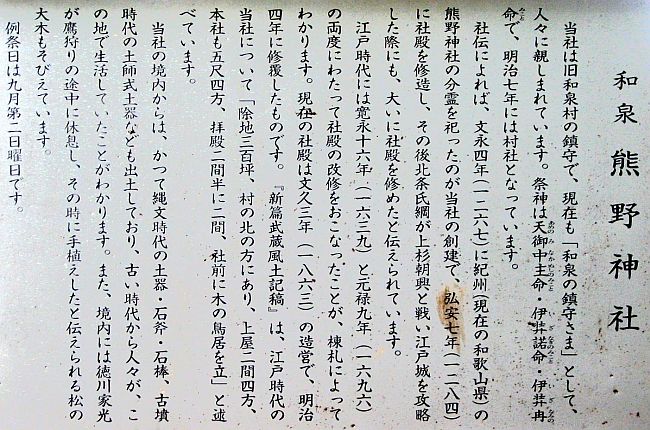 和泉熊野神社
当社は旧和泉村の鎮守で、現在も「和泉の鎮守さま」として、
人々に親しまれています。祭神は天御中主命・伊弉諾命・伊弉冉
命で、明治七年には村社となっています。
社伝によれば、文永四年(一二六七)に紀州(現在の和歌山県)の
熊野神社の分霊を祀ったのが当社の創建で、弘安七年(一二八四)
に社殿を修造し、その後北条氏綱が上杉朝興と戦い江戸城を攻略
した際にも、大いに社殿を修めたと伝えられています。
江戸時代には寛永十六年(一六三九)と元禄九年(一六九六)
の両度にわたって社殿の改修をおこなったことが、棟札によって
わかります。現在の社殿は文久三年(一八六三)の造営で、明治
四年に修覆したものです。『新篇武蔵風土記稿』は、江戸時代の
当社について「除地三百坪、村の北の方にあり、上屋二間四方、
本社も五尺四方、拝殿二間半に二間、社前に木の鳥居を立」と述
べています。
当社の境内からは、かつて縄文時代の土器・石斧・石棒、古墳
時代の土師式土器なども出土しており、古い時代から人々が、こ
の地で生活していたことがわかります。また、境内には徳川家光
が鷹狩りの途中に休息し、その時に手植えしたと伝えられる松の
大木もそびえています。
例祭日は九月第二日曜日です。